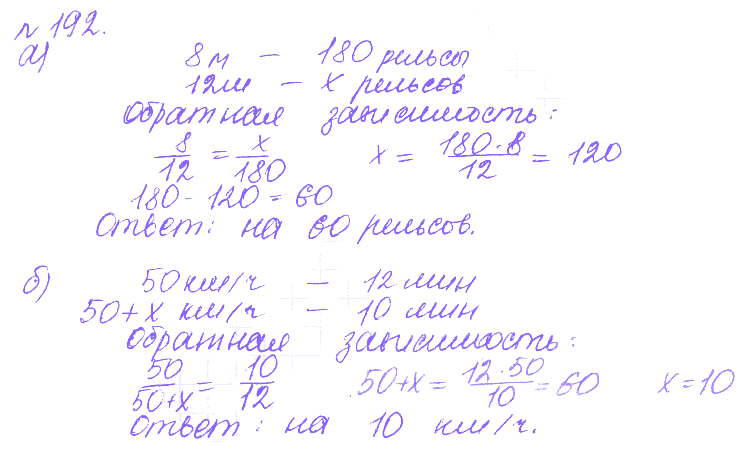 № 192.
а) 8м — 180 рельсы
12м — x рельсов
Обратная зависимость:
8/12 = x/180 x = 180·8/12 = 120
180 - 120 = 60
Ответ: на 60 рельсов.
б) 50 км/ч — 12 мин
50+x км/ч — 10 мин
Обратная зависимость:
50/50+x = 10/12 50+x = 12·50/10 = 60 x=10
Ответ: на 10 км/ч.